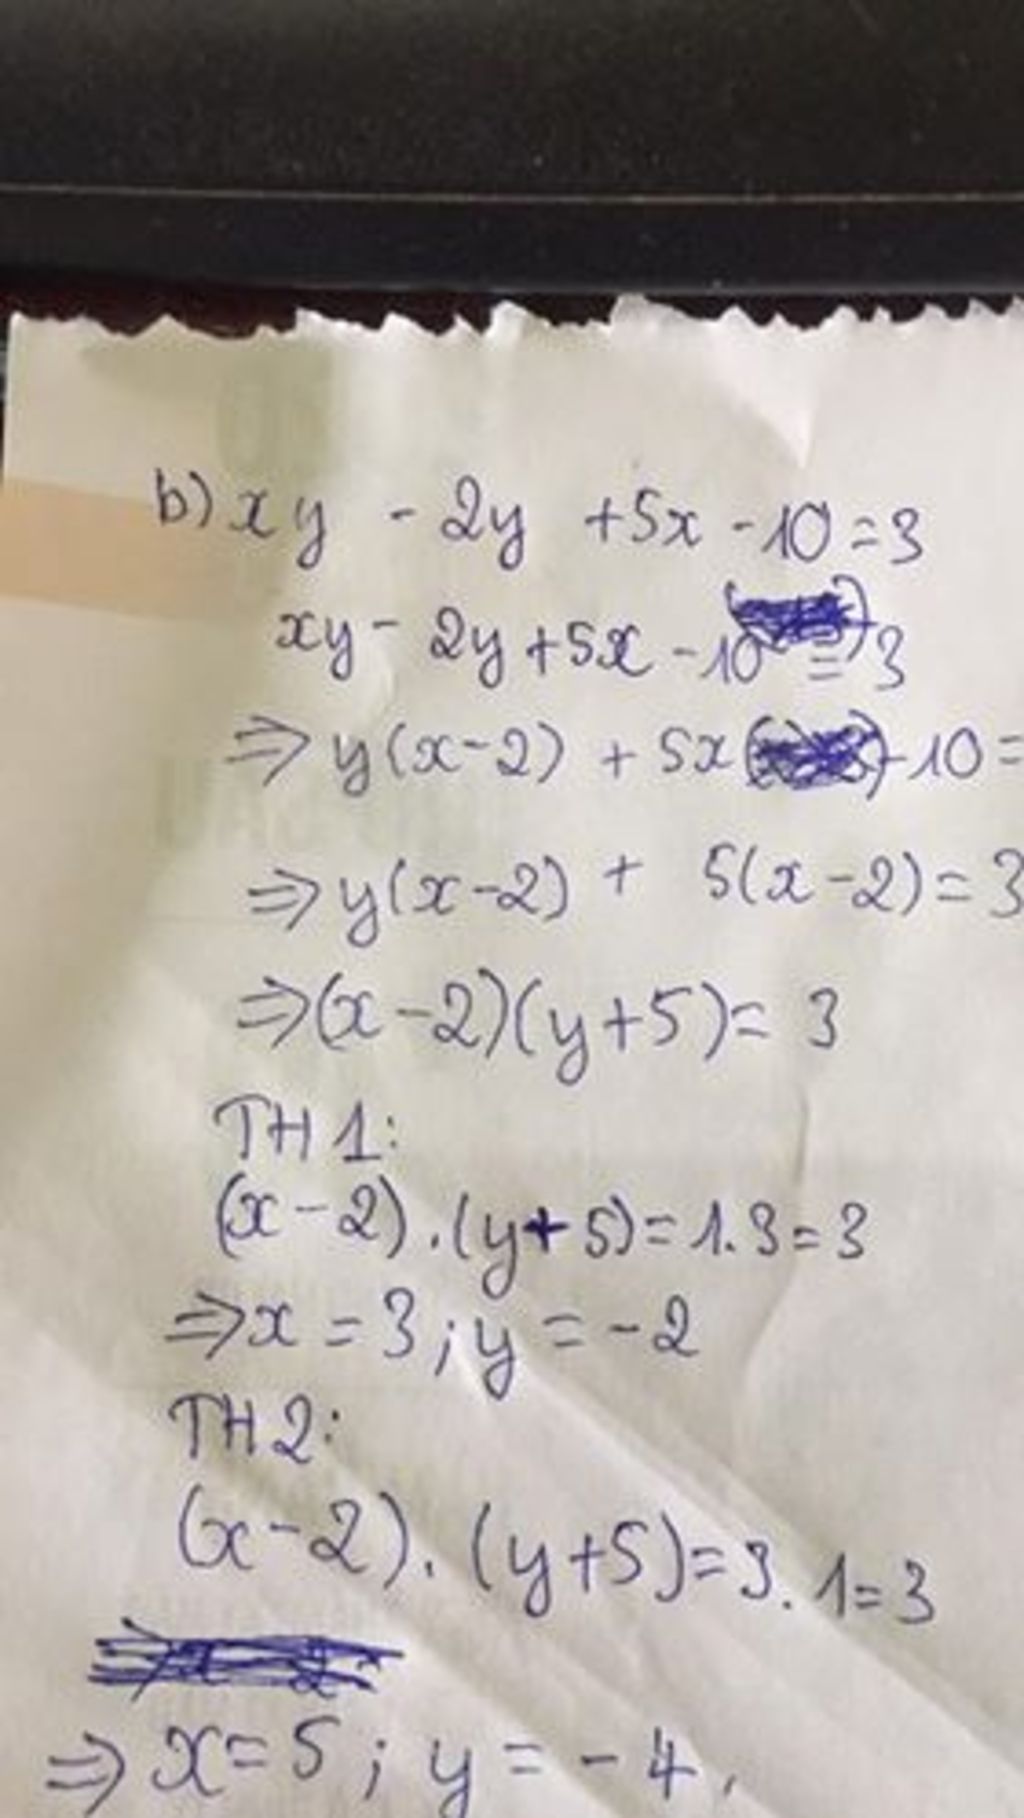 b) xy - 2y + 5x - 10 = 3
xy - 2y + 5x - 10 = 3
⇒ y(x-2) + 5x - 10 =
⇒ y(x-2) + 5(x-2) = 3
⇒ (x-2)(y+5) = 3
TH1:
(x-2).(y+5) = 1.3 = 3
⇒ x = 3; y = -2
TH2:
(x-2).(y+5) = 3.1 = 3
⇒ x = 5; y = -4.